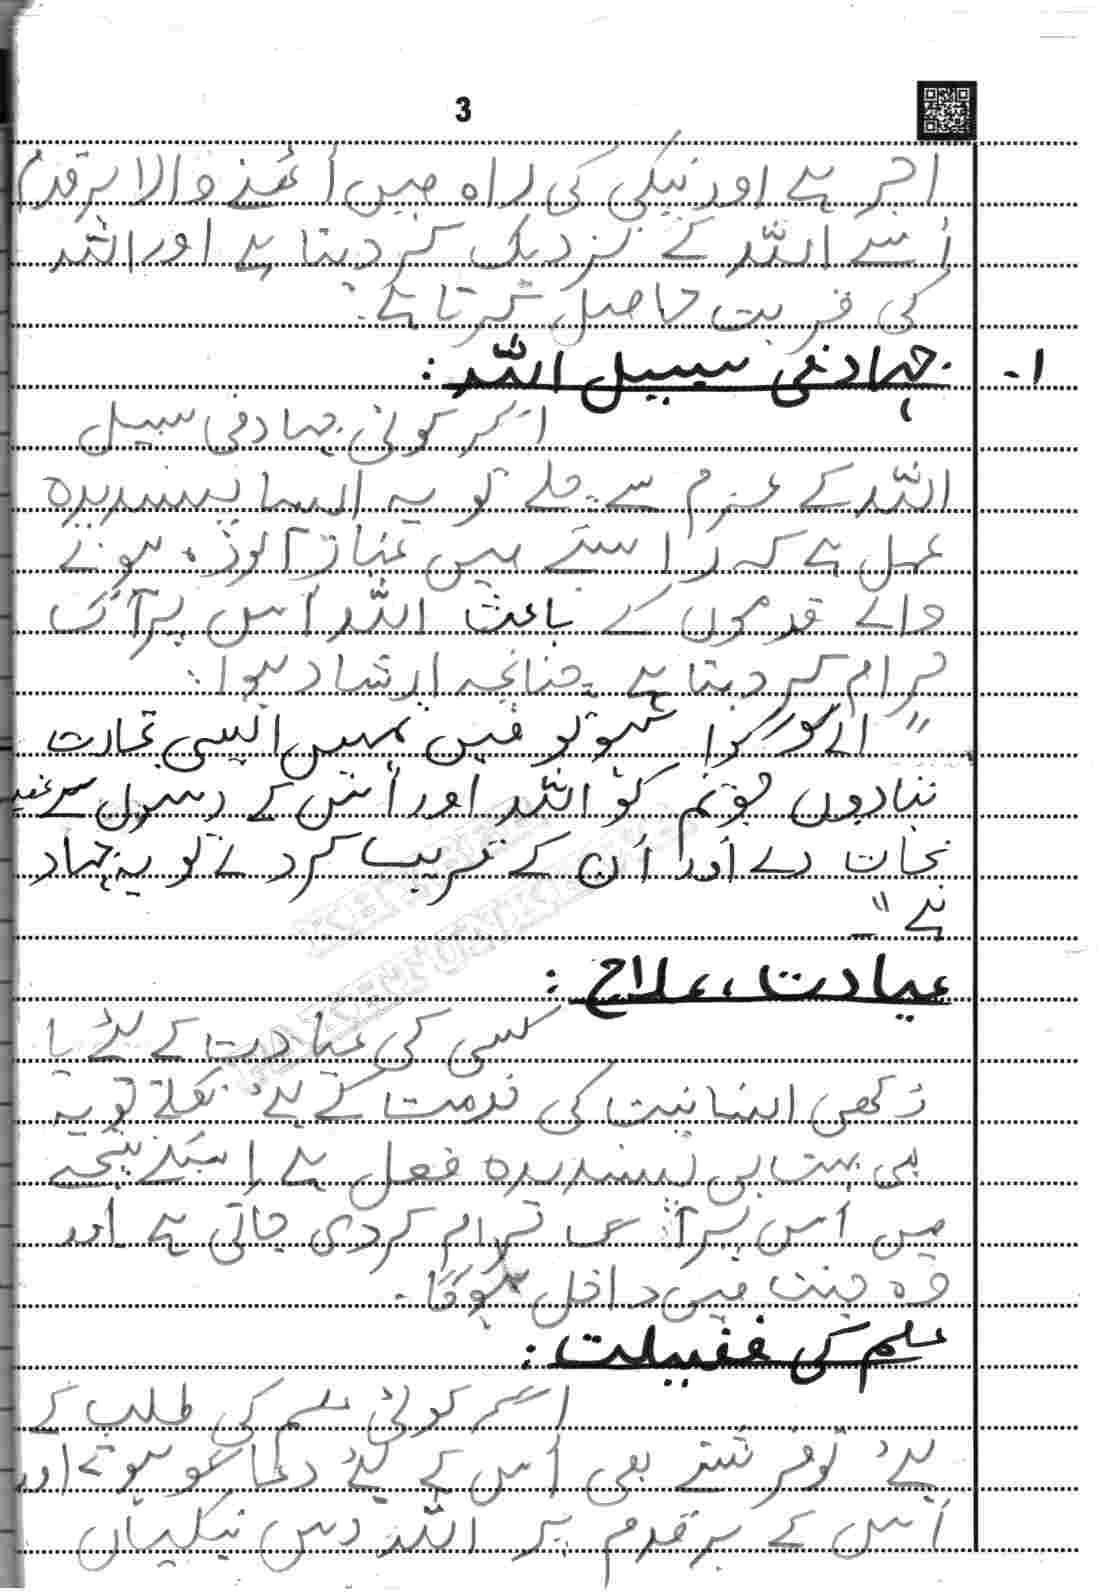 3
اجر ہے اور نیکی کی راہ میں اُٹھنے والا ہر قدم
اُسے اللہ کے نزدیک کر دیتا ہے اور اللہ
کی قربت حاصل کرتا ہے۔
۱۔ جہاد فی سبیل اللہ :
اگر کوئی جہاد فی سبیل
اللہ کے عزم سے چلے تو یہ ایسا پسندیدہ
عمل ہے کہ راستے میں غبار آلودہ ہونے
والے قدموں کے باعث اللہ اُس پر آگ
حرام کر دیتا ہے۔ چنانچہ ارشاد ہوا:
" اے لوگوں! سنو تو میں تمہیں ایسی تجارت
نہ بتادوں جو تم کو اللہ اور اُس کے رسول سے
نجات دے اور اُن کے قریب کر دے تو یہ جہاد
ہے"۔
عیادت ، علاج :
کسی کی عیادت کے لئے یا
دُکھی انسانیت کی خدمت کے لئے نکلے تو یہ
بھی بہت ہی پسندیدہ فعل ہے اسکے نتیجے
میں اُس پر آگ حرام کر دی جاتی ہے اور
وہ جنت میں داخل ہوگا۔
علم کی فضیلت :
اگر کوئی علم کی طلب کے
لئے تو فرشتے بھی اُس کے لئے دعا گو ہوتے اور
اُس کے ہر قدم پر اللہ دس نیکیاں
KHYBER
PAKHTUNKHWA